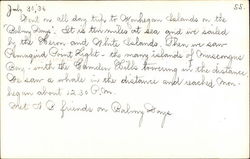 July 30, 36
55
Went on all day trip to Monhegan Islands on the
"Balmy Days". It is ten miles at sea and we sailed
by the Heron and White Islands. Then we saw
Pemaquid Point Light - the many islands of Muscongus
Bay - with the Camden Hills towering in the distance
We saw a whale in the distance and reached Mon-
hegan about 12:30 P.M.
Met A P friends on Balmy Days